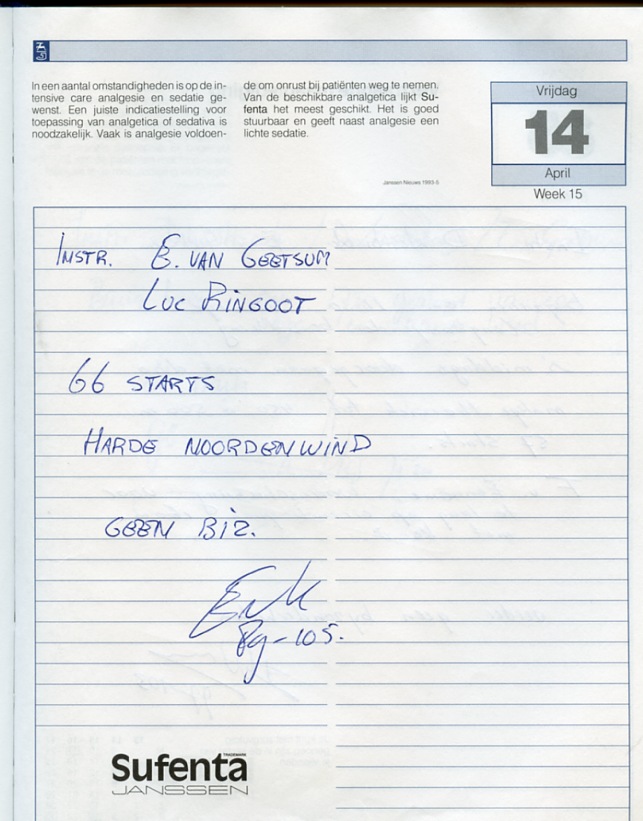 In een aantal omstandigheden is op de in-
tensive care analgesie en sedatie ge-
wenst. Een juiste indicatiestelling voor
toepassing van analgetica of sedativa is
noodzakelijk. Vaak is analgesie voldoen-
de om onrust bij patiënten weg te nemen.
Van de beschikbare analgetica lijkt Su-
fenta het meest geschikt. Het is goed
stuurbaar en geeft naast analgesie een
lichte sedatie.
Janssen Nieuws 1993-5
Vrijdag
14
April
Week 15
INSTR. E. VAN GEETSUM
LUC RINGOOT
66 STARTS
HARDE NOORDENWIND
GEEN BIZ.
Pg-105.
TRADEMARK
Sufenta
JANSSEN